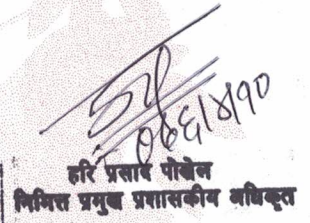 ०७६।४।१०
हरि प्रसाद पोखेल
निमित्त प्रमुख प्रशासकीय अधिकृत